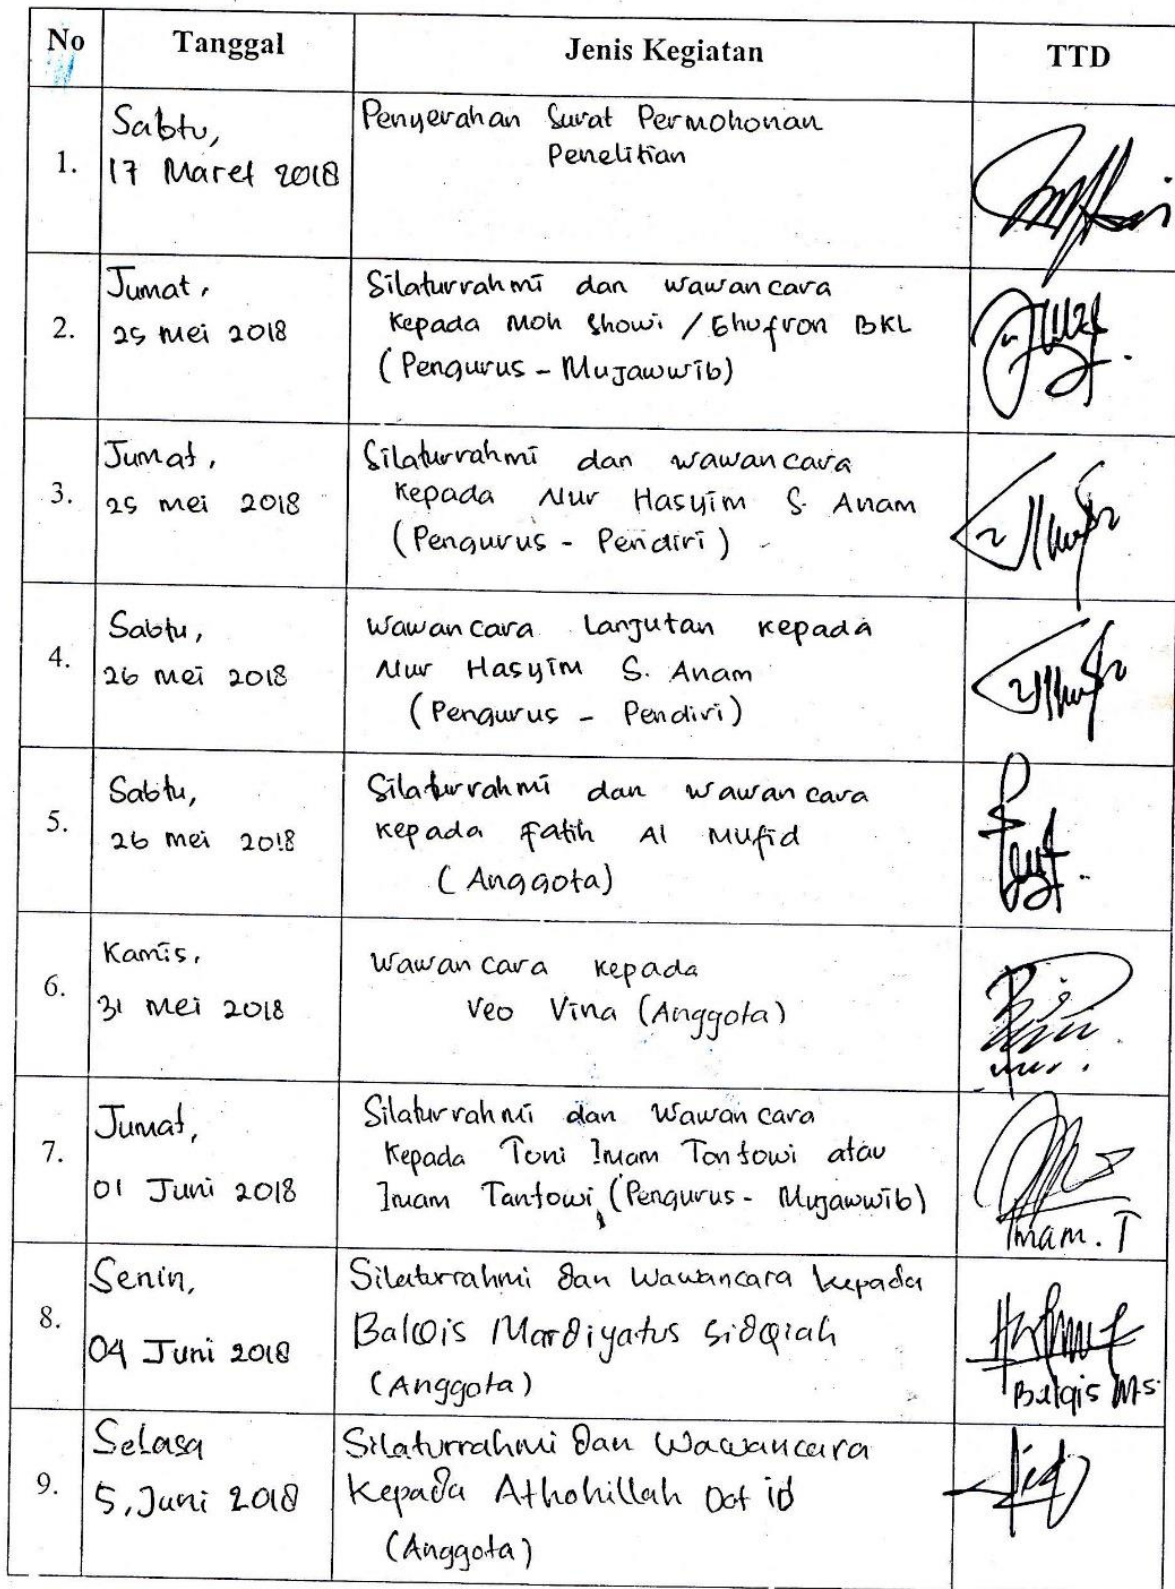 No Tanggal Jenis Kegiatan TTD
1. Sabtu,
17 Maret 2018
Penyerahan Surat Permohonan
Penelitian
2. Jumat,
25 Mei 2018
Silaturrahmi dan wawancara
kepada Moh Showi / Ghufron BKL
(Pengurus - Mujawwib)
3. Jumat,
25 mei 2018
Silaturrahmi dan wawancara
kepada Nur Hasyim S. Anam
(Pengurus - Pendiri)
4. Sabtu,
26 mei 2018
Wawancara Lanjutan kepada
Nur Hasyim S. Anam
(Pengurus - Pendiri)
5. Sabtu,
26 mei 2018
Silaturrahmi dan wawancara
kepada Fatih Al Mufid
(Anggota)
6. Kamis,
31 Mei 2018
Wawancara kepada
Veo Vina (Anggota)
7. Jumat,
01 Juni 2018
Silaturrahmi dan Wawancara
kepada Toni Imam Tontowi atau
Imam Tantowi, (Pengurus - Mujawwib)
Imam. T
8. Senin,
04 Juni 2018
Silaturrahmi dan Wawancara kepada
Balqis Mardiyatus Sidqiah
(Anggota)
Balqis M.S.
9. Selasa
5, Juni 2018
Silaturrahmi dan Wawancara
kepada Athohillah Dot id
(Anggota)